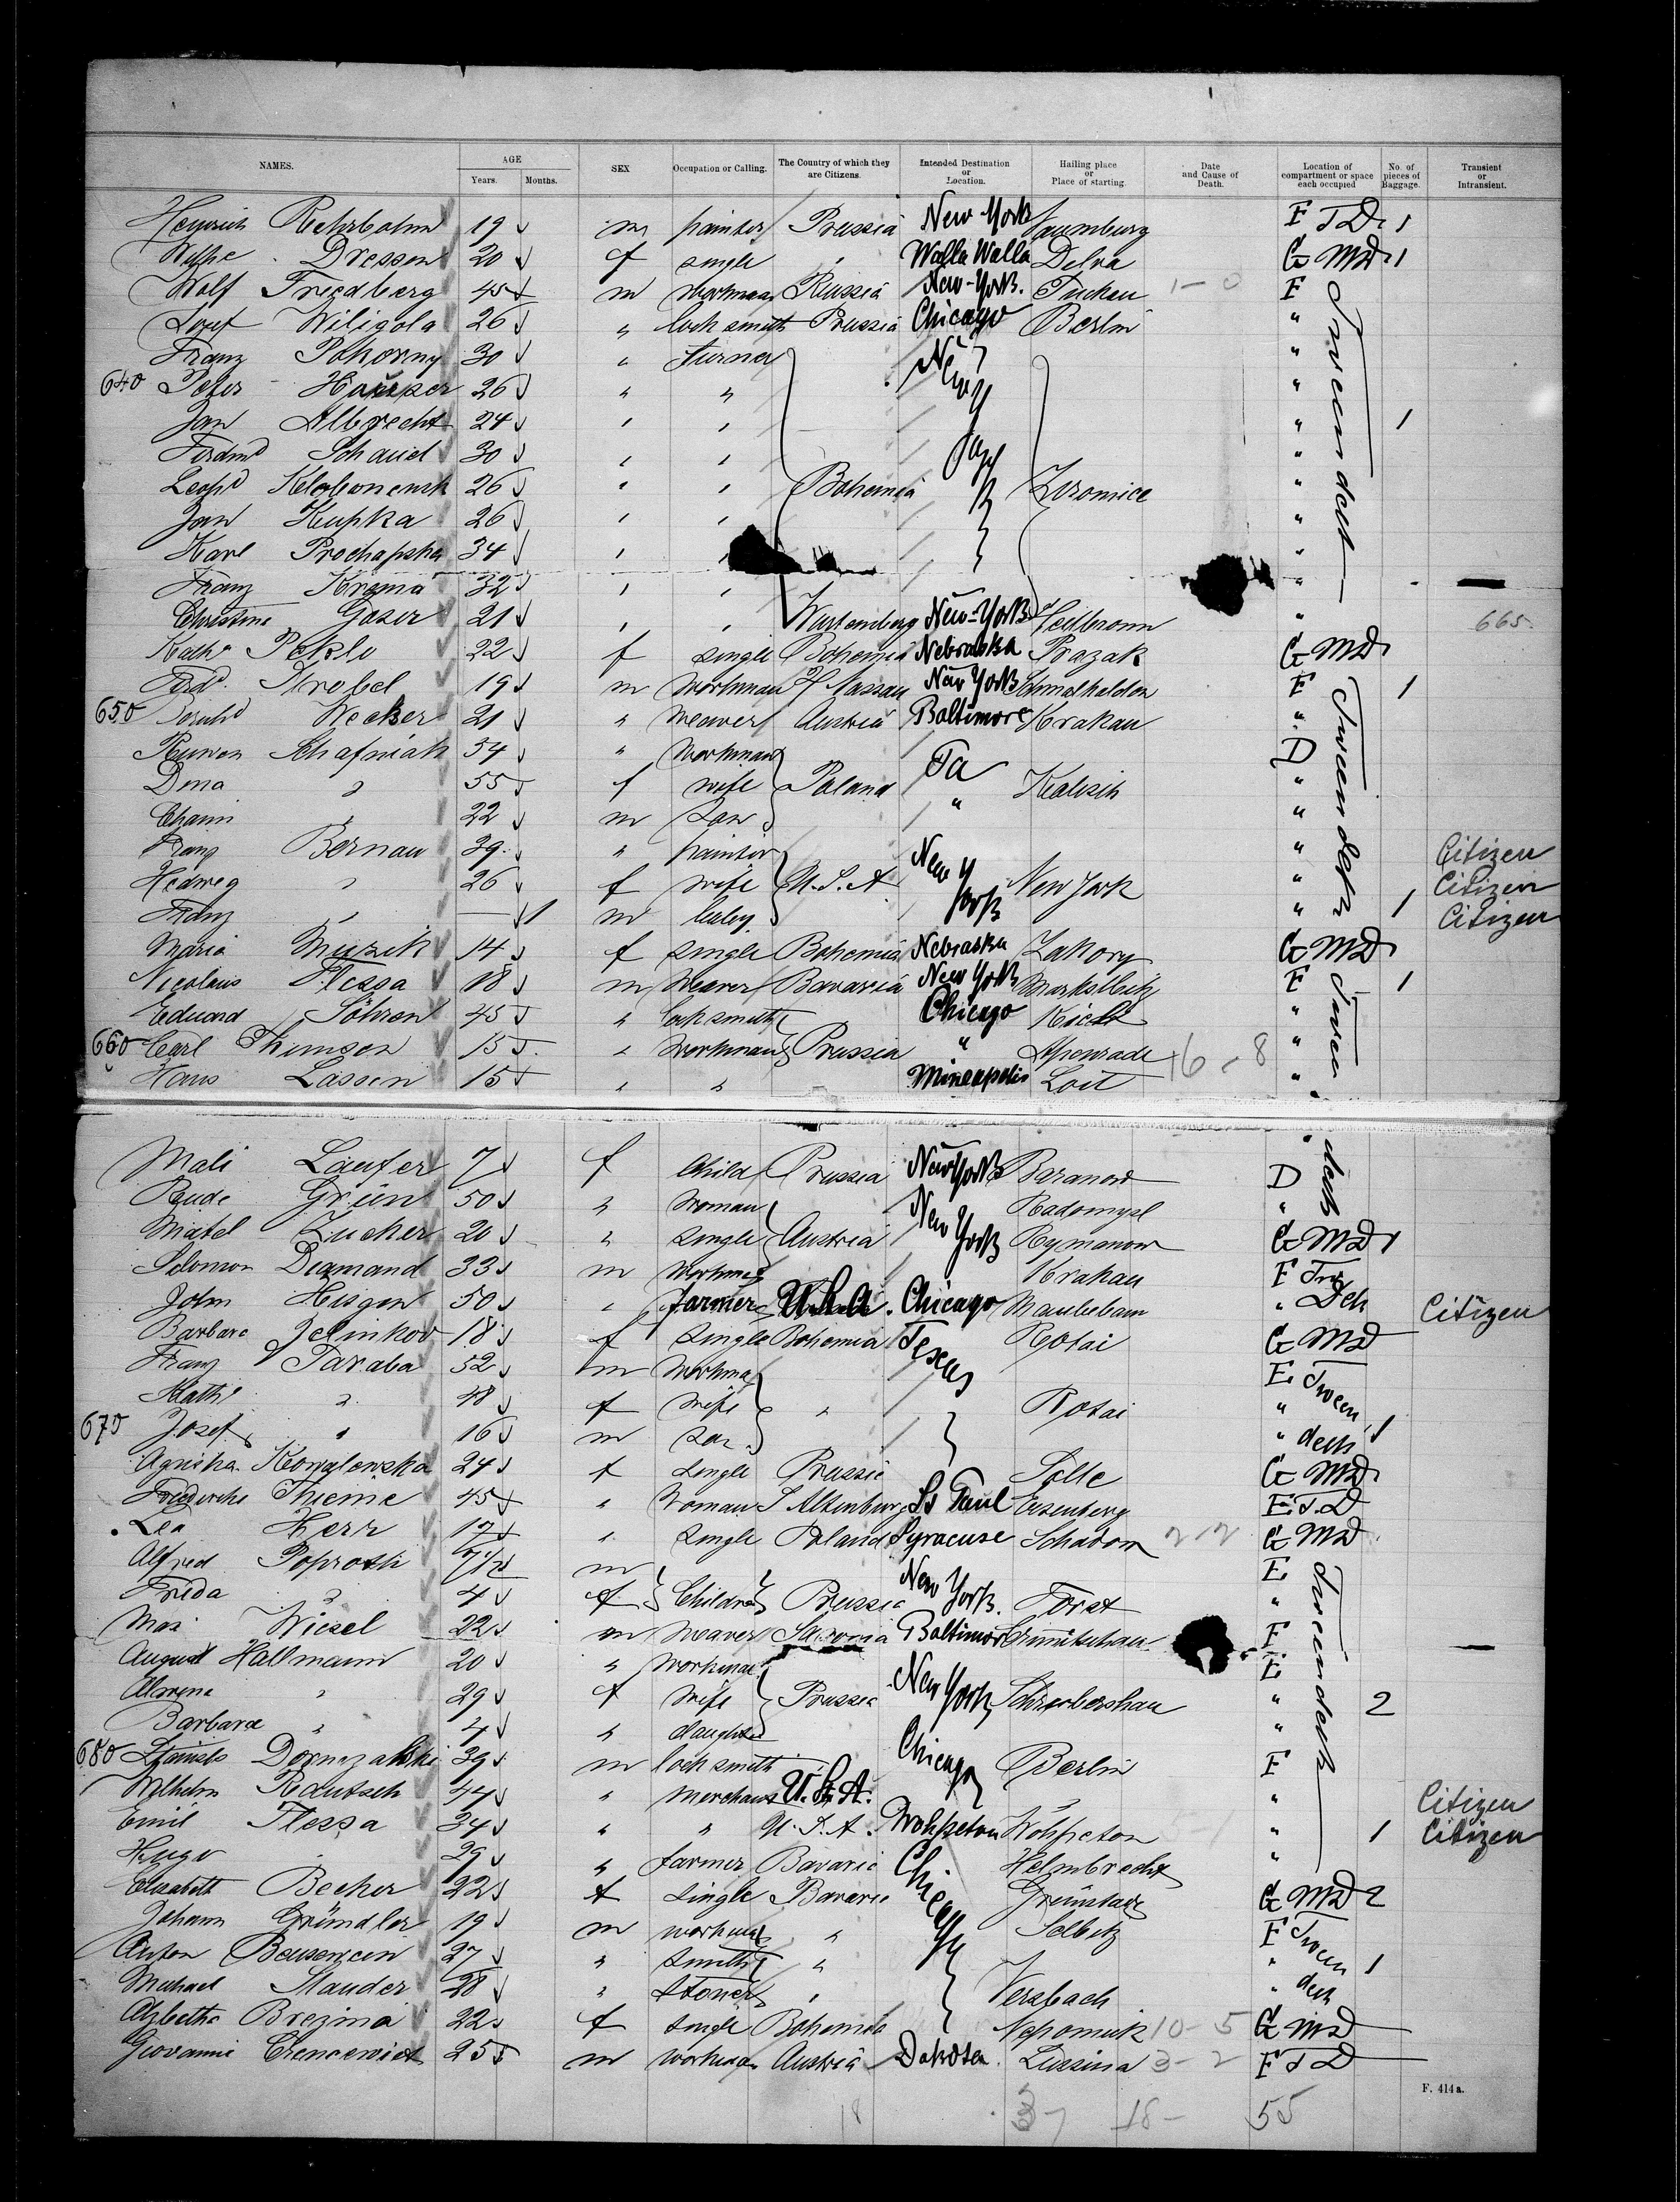 NAMES. AGE Years. Months. SEX Occupation or Calling. The Country of which they are Citizens. Intended Destination or Location. Hailing place or Place of starting. Date and Cause of Death. Location of compartment or space each occupied No. of pieces of Baggage. Transient or Intransient.
Heinrich Rehrbohm 19 m painter Prussia New-York F T D 1
Dressen 20 f single " Walla Walla Delva G MD 1
Wolf Friedberg 45 m Workman Russia New-York. Tuckau 1-0 F Tweendeck
Josef Wiligola 26 " locksmith Prussia Chicago Berlin "
Franz Pokorny 30 " turner New "
640 Peter 26 " " "
Jan Albrecht 24 " " " 1
Ferdind Schauel 30 " " "
Leopd 26 " " Bohemia Zizomice "
Jan Kupka 26 " " "
Karl Prochapska 34 " " "
Franz Krama 32 " " "
Christine Gaser 21 " " Wurtemberg New-York Heilbronn " 665.
Kath Peklo 22 f single Bohemia Nebraska Prazak G MD
Ferd. Strobel 19 m workman H Nassau New York Schmalkalden F 1 Tweendeck
650 Wecker 21 " weaver Austria Baltimore Krakau "
Ruwen Schafniak 54 " workman Pa D
Dina " 55 f wife Poland " Kalisch "
Chaim " 22 m son "
Franz Bernau 39 " painter New York " Citizen
Hedwig " 26 f wife U.S.A. New York " Citizen
Franz " 1 m baby " 1 Citizen
Maria Muzik 14 f single Bohemia Nebraska Zakory G MD
Nicolaus Flessa 18 m weaver Bavaria New York F 1
Eduard Söhren 45 " locksmith Chicago " Tween
660 Carl Thomsen 15 " workman Prussia " Apenrade 16-8 "
Hans Lassen 15 " " Mineapolis Loit "
Mali Laufer 7 f Child Prussia New York Baranow D deck
Rude Grün 50 " woman New York Radomysl "
Matel Zucker 20 " single Austria Rymanow G MD 1
Solomon Diamand 33 m workman Krakau F Tw
John Hisgen 50 " farmer U.S.A. Chicago Maulebam " Deck Citizen
Barbara Jelinkov 18 f single Bohemia Texas Rotai G MD
Franz Taraba 52 m workman E Tween
Kath " 48 f wife " Rotai "
670 Josef " 16 m son " deck 1
Agniska Kowalowska 24 f single Prussia G MD
Friedericke Thieme 45 " woman S Altenburg St Paul Eisenberg E T.D
Lea Herr 17 " single Poland Syracuse Schadow 2-12 G MD
Alfred Poprosch m New York E Tweendeck
Frida " 4 f Children Prussia Forst "
Max Wiesel 22 m weaver Saxonia Baltimore Crimitschau F
August Hallmann 20 " workman New York E
Alwine " 29 f wife Prussia Schreibershau " 2
Barbara " 4 " daughter "
680 Stanisls 39 m locksmith Chicago Berlin F
Wilhelm Rautsch 44 " merchant U.S.A. " Citizen
Emil Flessa 34 " " U.S.A. Wohpeton Wohpeton " 1 Citizen
Hugo " 29 " farmer Bavaria Chicago Helmbrecht "
Elisabeth Becher 22 f single Bavaria Grünstadt G MD 2
Johann Gründler 19 m workman " Selbitz F Tween
Anton 27 " smith " " 1
Michael Stauder 28 " stoner " Versbach " deck
Brezina 22 f single Bohemia Nepomuk 10-5 G MD
Giovanni 25 m workman Austria Dakota Lussina 3-2 F T D
F. 414 a.
18 37 18- 55